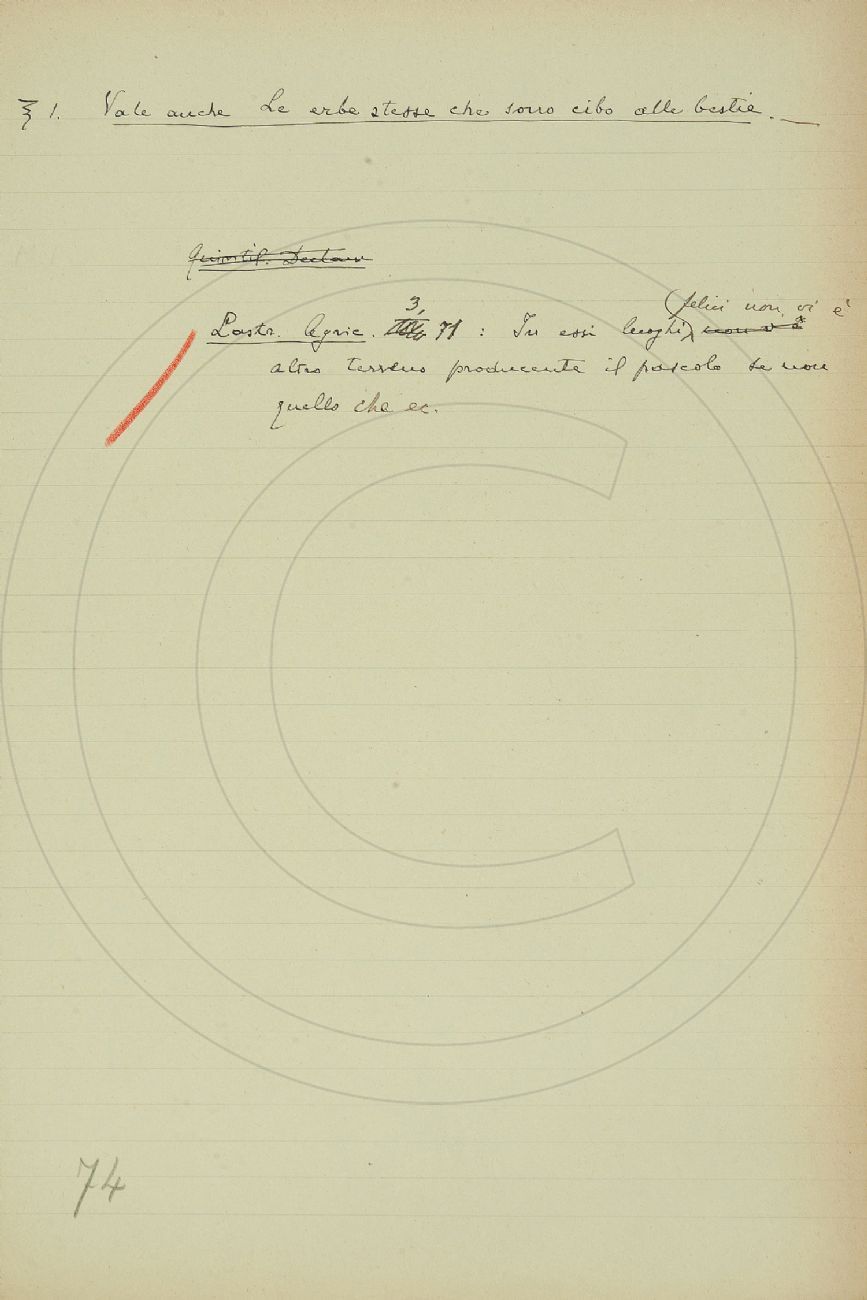 § 1. Vale anche Le erbe stesse che sono cibo alle bestie. —
Quintil. Declam
3,
(felici non vi è
Lastr. Agric. 71 : In essi luoghi) non v è
altro terreno producente il pascolo se non
quello che ec.
74